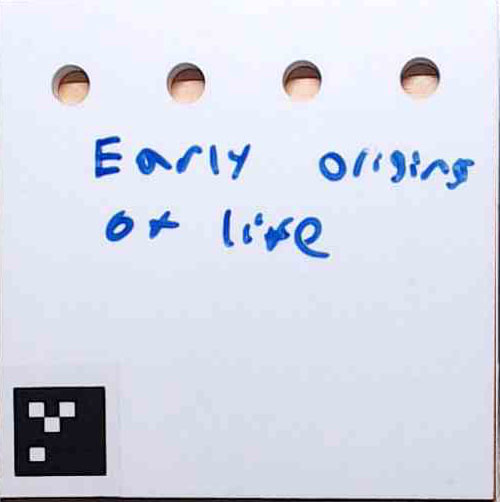 Early origins
of life